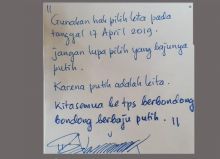 "
Gunakan hak pilih kita pada
tanggal 17 April 2019.
jangan lupa pilih yang bajunya
putih.
Karena putih adalah kita.
Kita semua ke tps berbondong
bondong berbaju putih. "